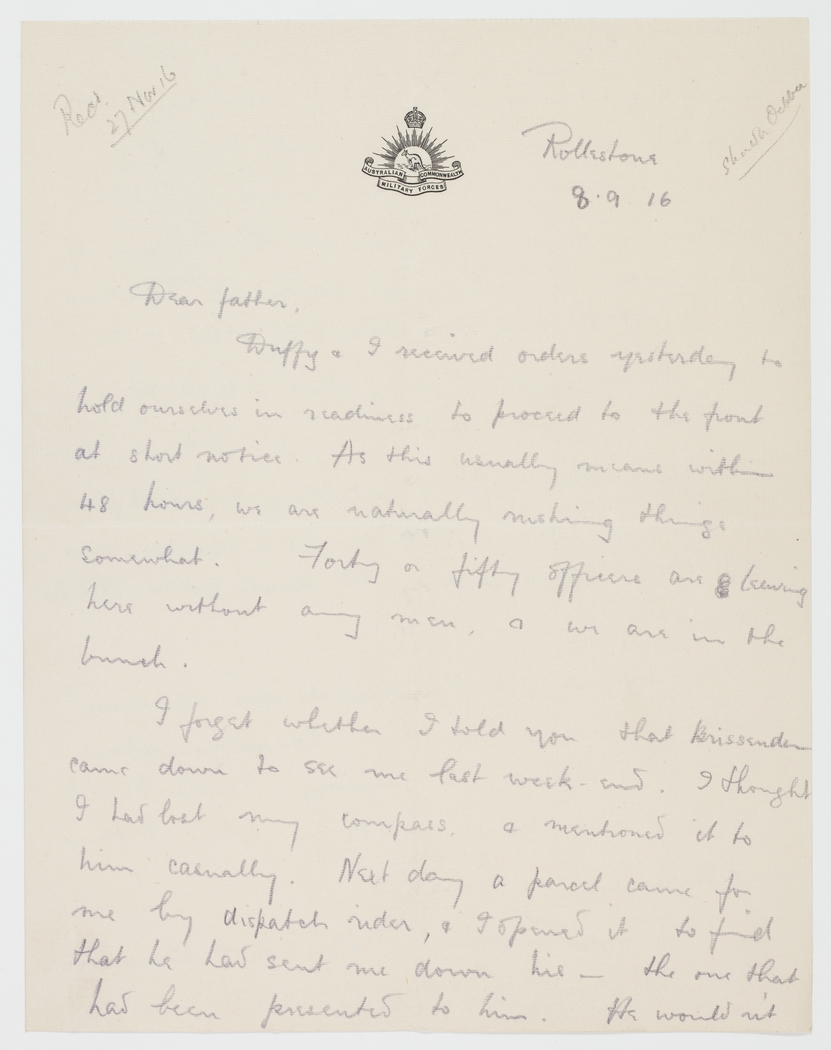 Recd.
27 Nov 16
AUSTRALIAN COMMONWEALTH
MILITARY FORCES
Rollestone
8.9.16
Dear father,
Duffy & I received orders yesterday to
hold ourselves in readiness to proceed to the front
at short notice. As this usually means within
48 hours, we are naturally rushing things
somewhat. Forty or fifty officers are leaving
here without any men, & we are in the
bunch.
I forget whether I told you that Brissenden
came down to see me last week-end. I thought
I had lost my compass, & mentioned it to
him casually. Next day a parcel came for
me by dispatch rider, & I opened it to find
that he had sent me down his — the one that
had been presented to him. He would n't